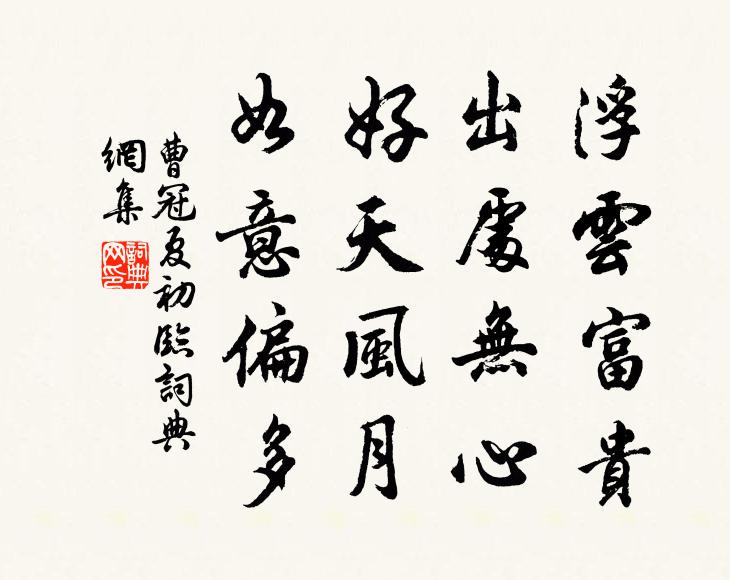 浮雲富貴
出處無心
好天風月
如意偏多
曹冠夏初臨詞典
網集
詞典
网印